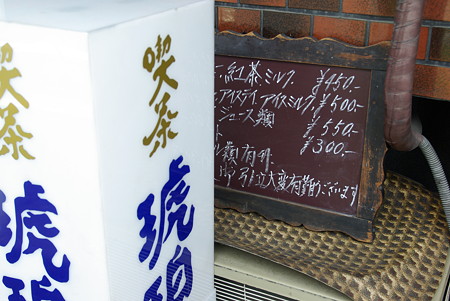 喫茶
琥
喫茶
琥珀
紅茶 ミルク ¥450.-
アイスティ アイスミルク ¥500-
ジュース類 ¥550-
ト ¥300.-
ル類 有料
御引立大変有難うございます